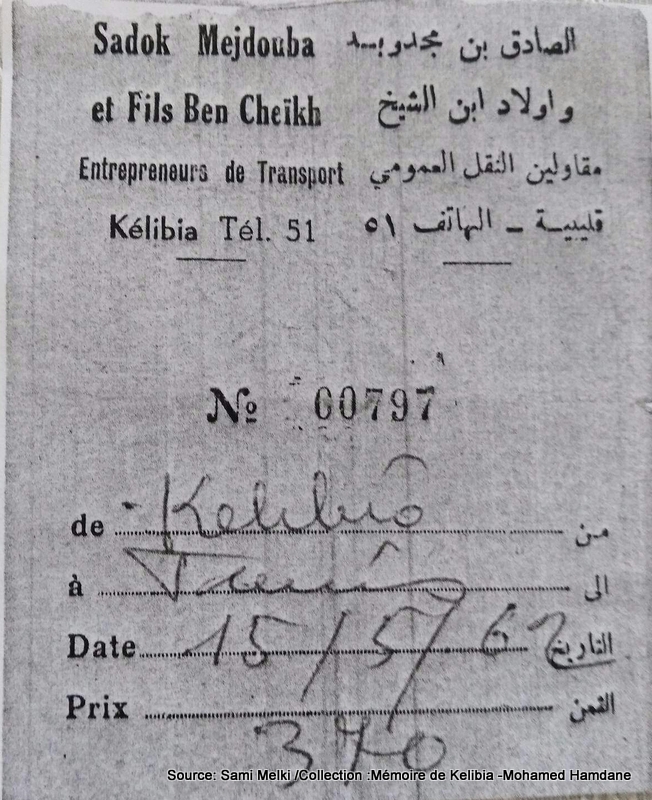 Sadok Mejdouba الصادق بن مجدوبـــه
et Fils Ben Cheïkh واولاد ابن الشيخ
Entrepreneurs de Transport مقاولين النقل العمومي
Kélibia Tél. 51 قليبيـــة ــ الهاتف ٥١
№ 00797
de Kelibia من
à Tunis الى
Date 15/5/62 التاريخ
Prix الثمن
370
Source: Sami Melki /Collection :Mémoire de Kelibia -Mohamed Hamdane